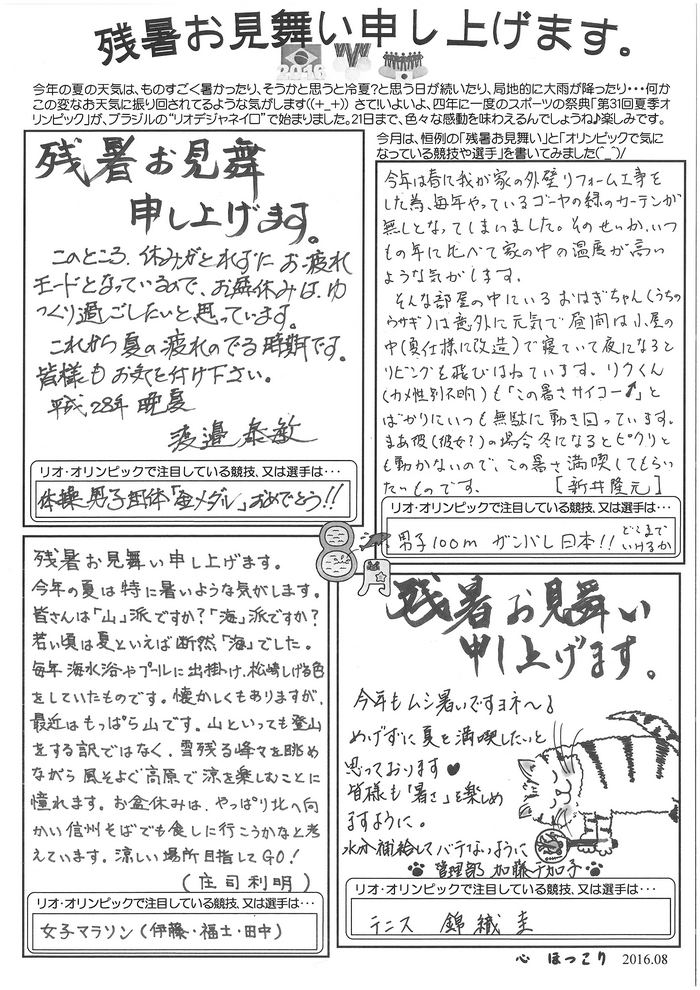 残暑お見舞い申し上げます。
2016
今年の夏の天気は、ものすごく暑かったり、そうかと思うと冷夏?と思う日が続いたり、局地的に大雨が降ったり・・・何か
この変なお天気に振り回されてるような気がします((+_+)) さていよいよ、四年に一度のスポーツの祭典「第31回夏季オ
リンピック」が、ブラジルの"リオデジャネイロ"で始まりました。21日まで、色々な感動を味わえるんでしょうね♪楽しみです。
今月は、恒例の「残暑お見舞い」と「オリンピックで気に
なっている競技や選手」を書いてみました(^_^)/
残暑お見舞
申し上げます。
このところ、休みがとれずに お疲れ
モードとなっているので、お盆休みは、ゆ
っくり過ごしたいと思っています。
これから夏の疲れのでる時期です。
皆様もお気を付け下さい。
平成28年 晩夏
渡邉 泰敏
リオ・オリンピックで注目している競技、又は選手は・・・
体操男子団体「金メダル」おめでとう!!
今年は春に我が家の外壁リフォーム工事を
した為、毎年やっているゴーヤの緑のカーテンが
無しとなってしまいました。そのせいか、いつ
もの年に比べて家の中の温度が高い
ような気がします。
そんな部屋の中にいる おはぎちゃん(うちの
ウサギ)は意外に元気で昼間は小屋の
中(奥仕様に改造)で寝ていて夜になると
リビングを飛びはねています。リクくん
(カメ性別不明)も「この暑さサイコー↑」と
ばかりにいつも無駄に動き回っています。
まあ彼(彼女?)の場合冬になるとピクリと
も動かないので、この暑さ満喫してもらい
たいものです。 [新井隆元]
リオ・オリンピックで注目している競技、又は選手は・・・
男子100m ガンバレ日本!! どこまで
いけるか
8月
残暑お見舞い申し上げます。
今年の夏は特に暑いような気がします。
皆さんは「山」派ですか?「海」派ですか?
若い頃は夏といえば断然、「海」でした。
毎年海水浴やプールに出掛け、松崎しげる色
をしていたものです。懐かしくもありますが、
最近はもっぱら山です。山といっても登山
をする訳ではなく、雪残る峰々を眺め
ながら風そよぐ高原で涼を楽しむことに
憧れます。お盆休みは、やっぱり北へ向
かい信州そばでも食しに行こうかなと考
えています。涼しい場所目指してGO!
(庄司利明)
リオ・オリンピックで注目している競技、又は選手は・・・
女子マラソン(伊藤・福士・田中)
残暑お見舞い
申し上げます。
今年もムシ暑いですヨネ～
めげずに夏を満喫したいと
思っております♥
皆様も「暑さ」を楽しめ
ますように。
水分補給してバテないように
管理部 加藤千加子
リオ・オリンピックで注目している競技、又は選手は・・・
テニス 錦織圭
心 ほっこり 2016.08